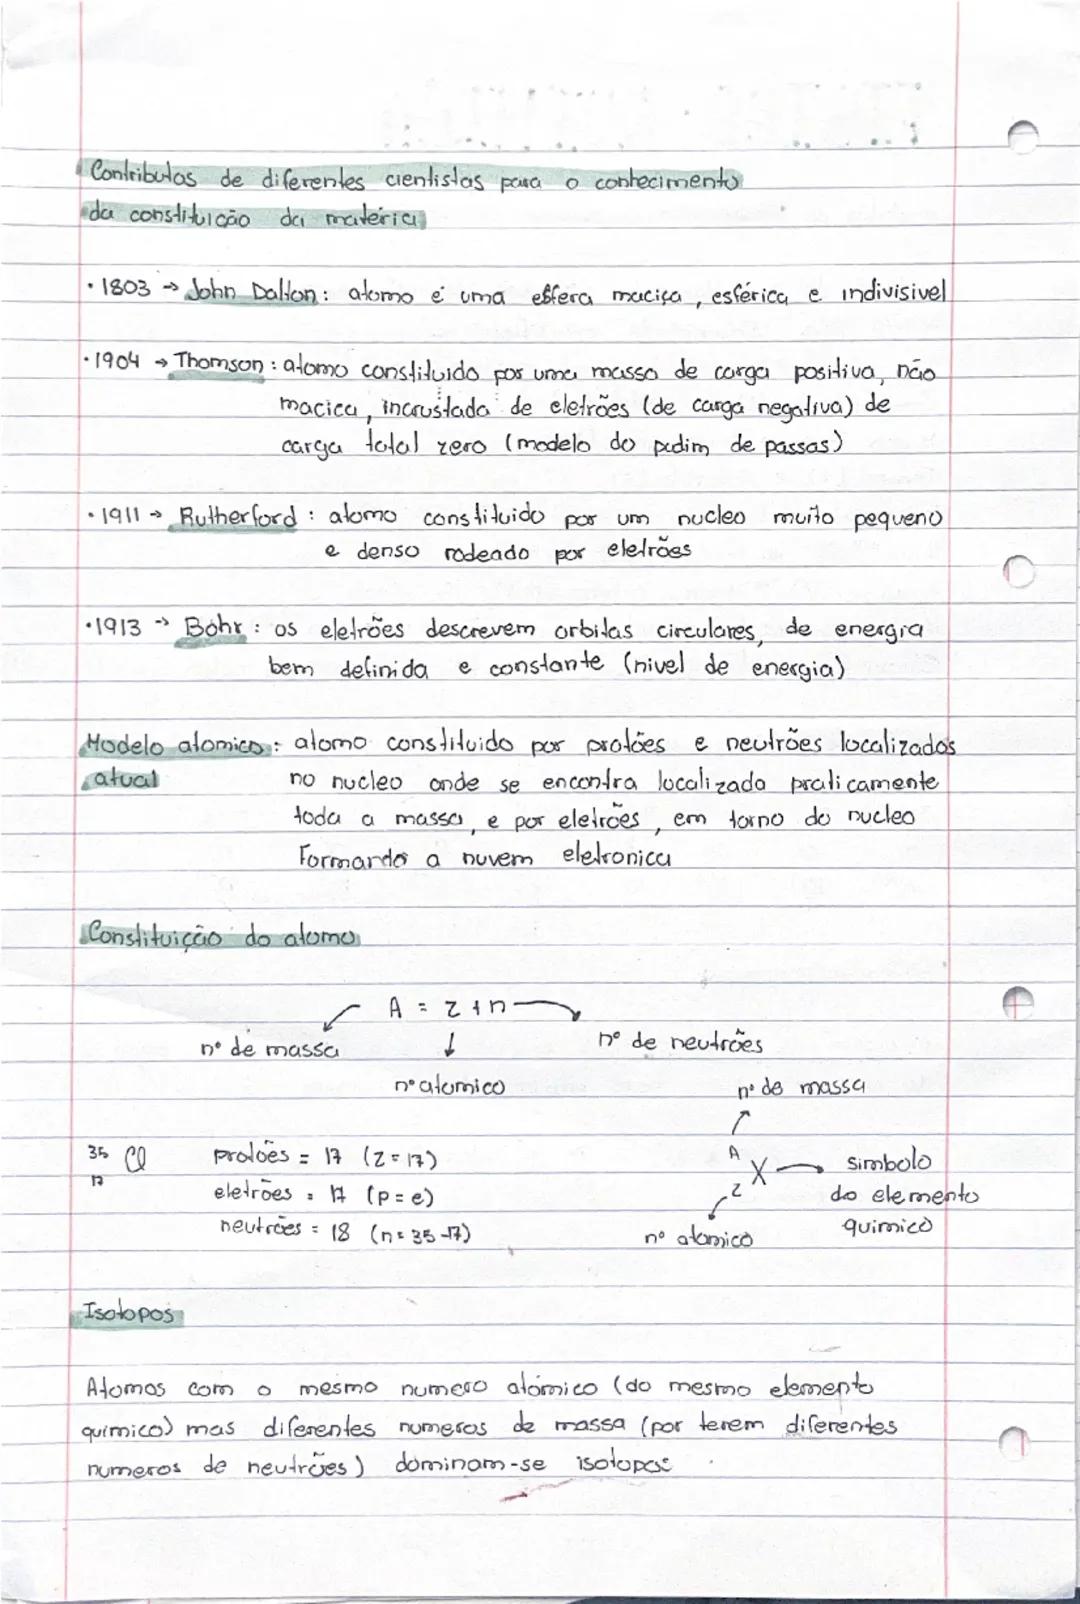 Contributos de diferentes cientistas para o conhecimento
da constituição da matéria
· 1803 → John Dalton: atomo é uma esfera maciça, esférica e indivisivel
· 1904 → Thomson: atomo constituido por uma massa de carga positiva, não
macica, incrustada de eletrões (de carga negativa) de
carga total zero (modelo do pudim de passas)
· 1911 → Rutherford: atomo constituido por um nucleo muito pequeno
e denso rodeado por eletrões
· 1913 → Bohr: os eletrões descrevem orbitas circulares, de energia
bem definida e constante (nivel de energia)
Modelo atomico: atomo constituido por protões e neutrões localizados
atual no nucleo onde se encontra localizada praticamente
toda a massa, e por eletrões, em torno do nucleo
Formando a nuvem eletronica
Constituição do atomo
A = Z + n
nº de massa ↓ nº de neutrões
nº atomico nº de massa
35 Cl protões = 17 (Z = 17) A X → simbolo
17 eletrões = 17 (p = e) Z do elemento
neutrões = 18 (n = 35 - 17) nº atomico quimico
Isotopos
Atomos com o mesmo numero atómico (do mesmo elemento
quimico) mas diferentes numeros de massa (por terem diferentes
numeros de neutrões) dominam-se isotopos